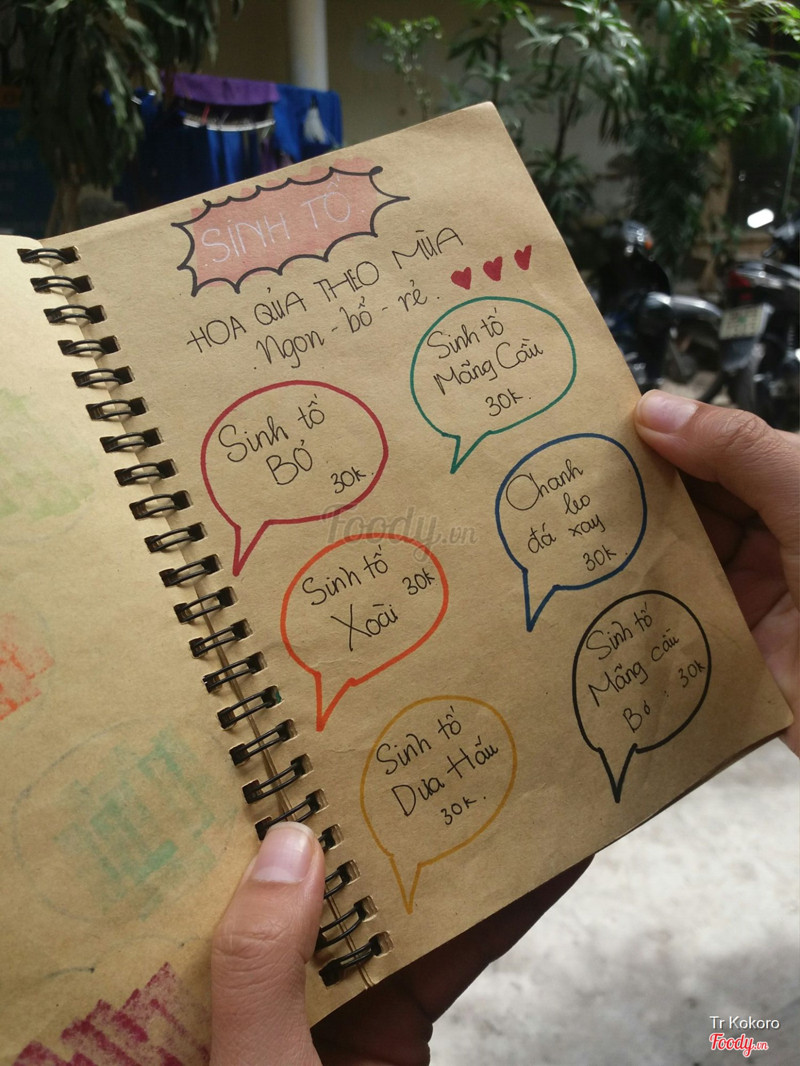 SINH TỐ
HOA QỦA THEO MÙA
Ngon - bổ - rẻ.
Sinh tố
Mãng Cầu
30k.
Sinh tố
BƠ
30k.
Chanh
leo
đá xay
30k.
Sinh tố
30k
Xoài
Sinh tố
Mãng cầu
Bơ. 30k
Sinh tố
Dưa Hấu
30k.
Foody.vn
Tr Kokoro
Foody.vn